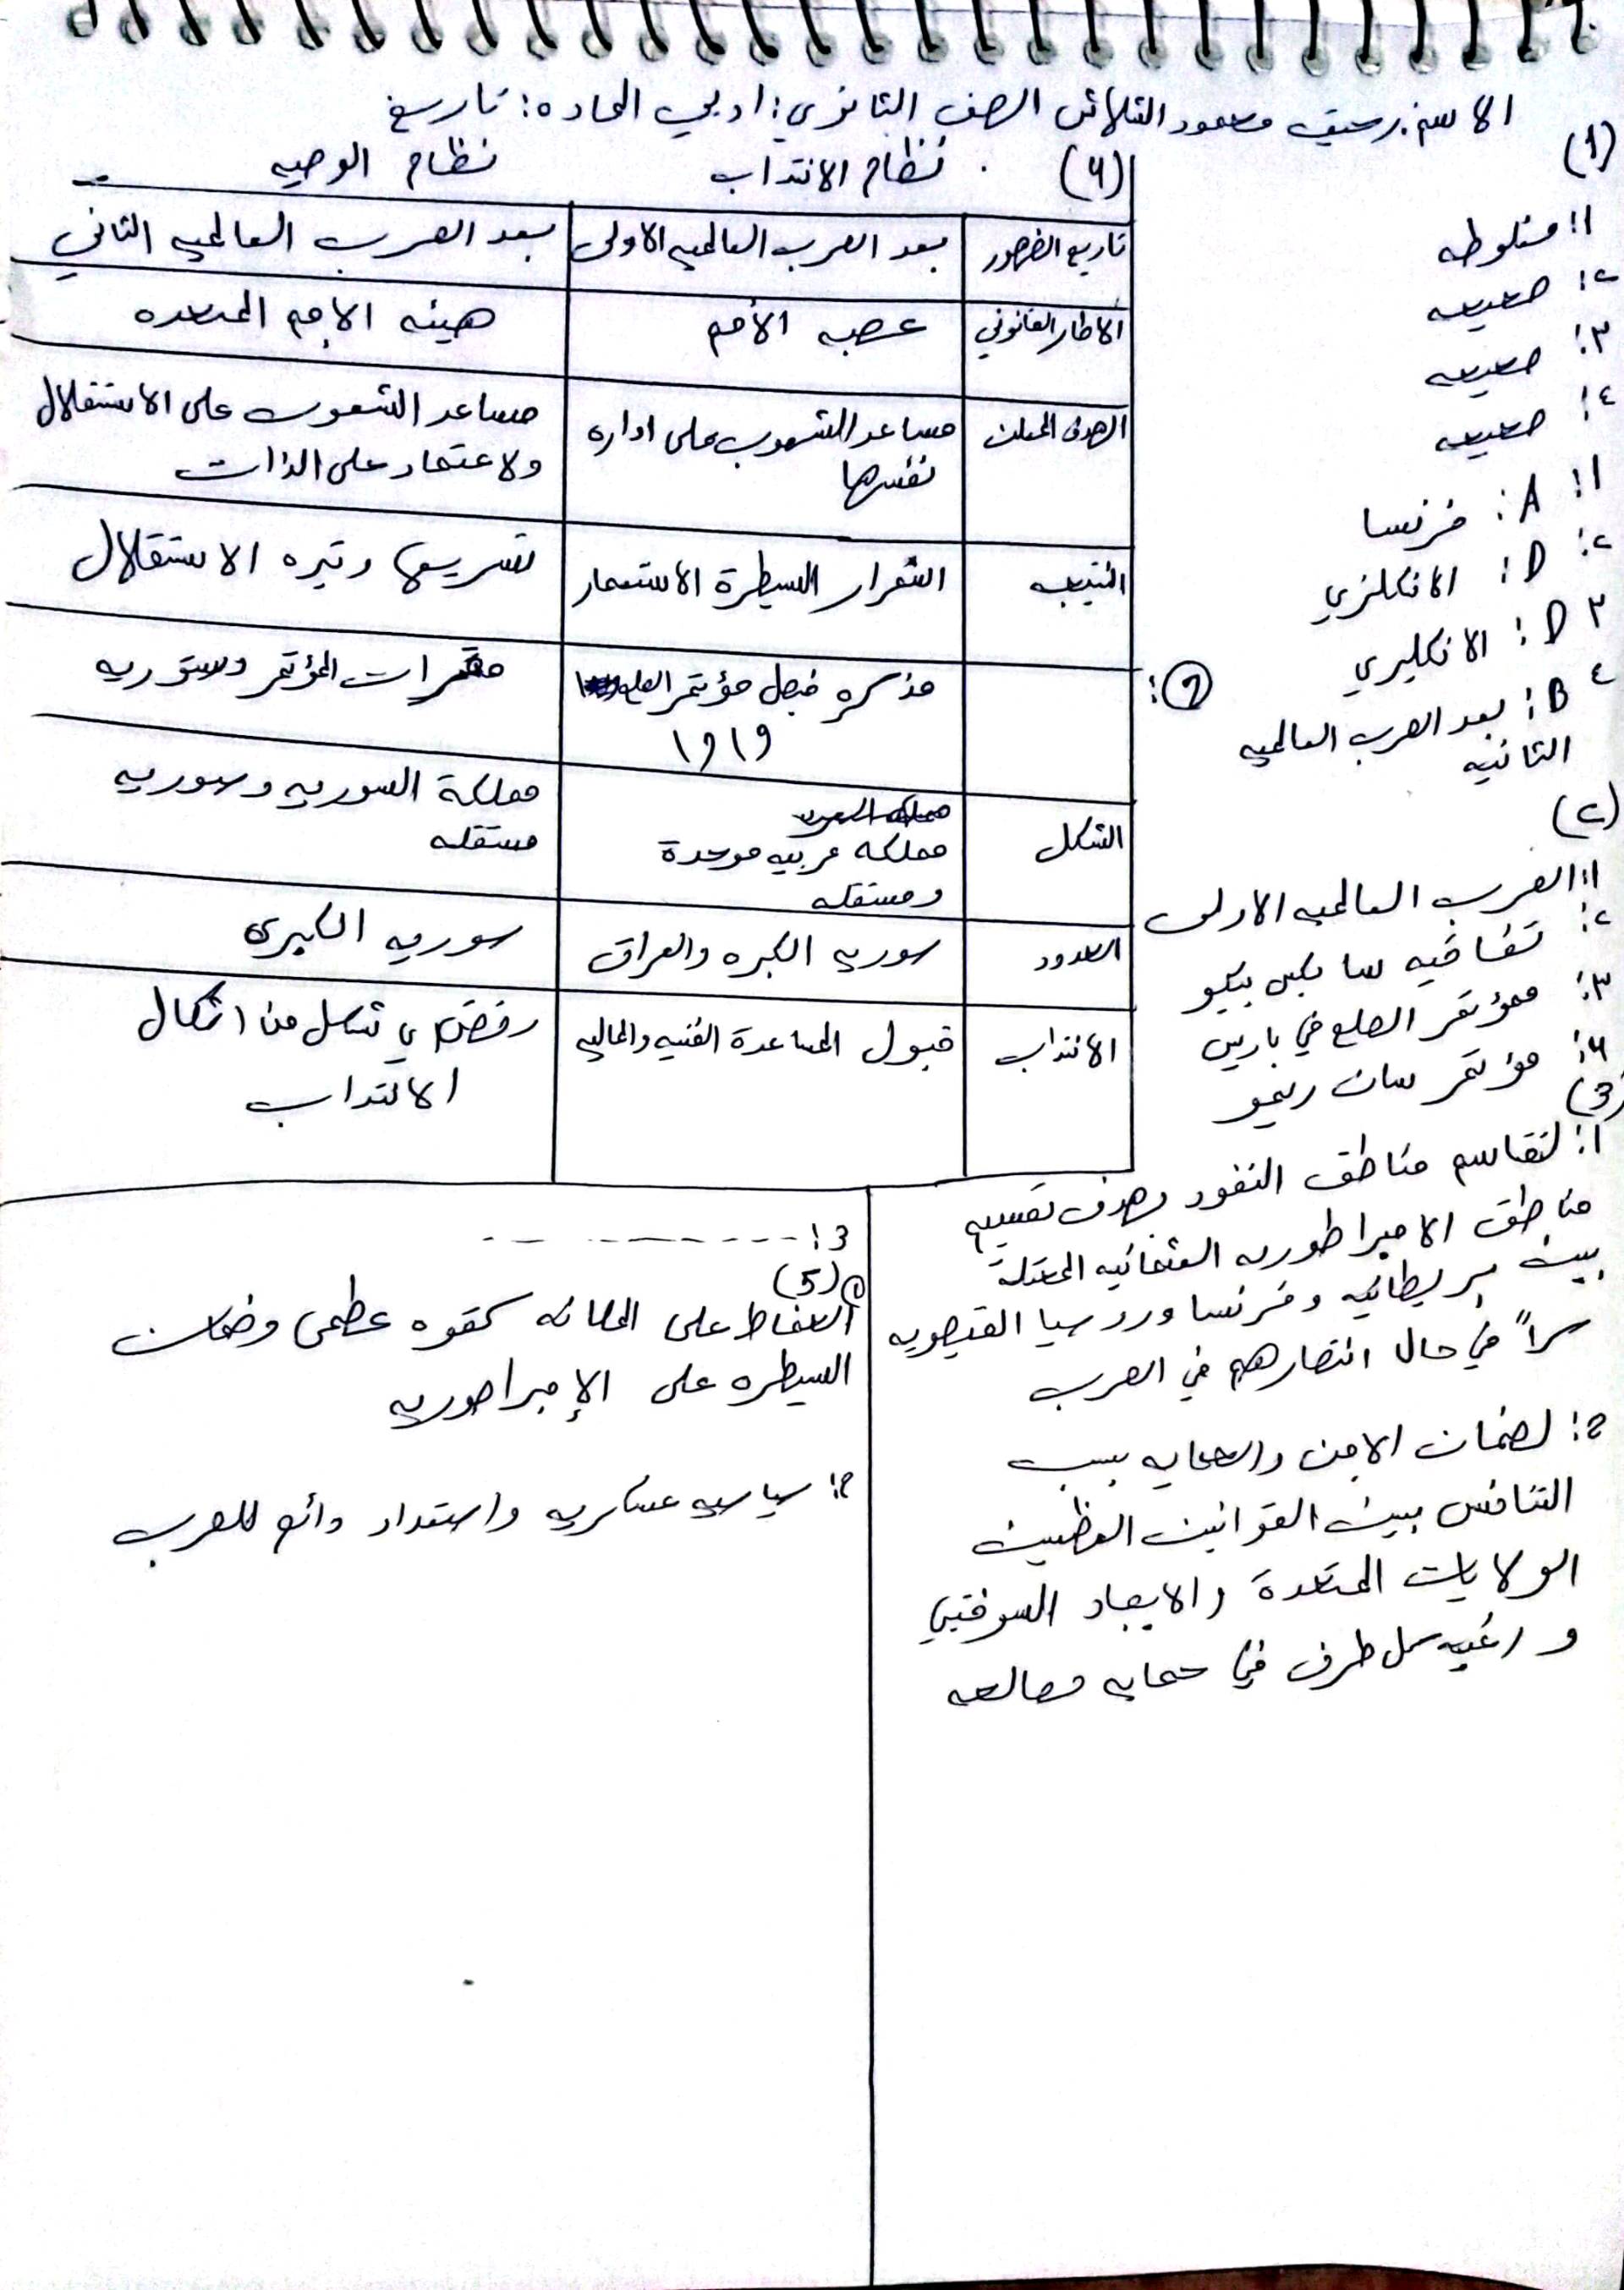 الاسم: رحيق محمود الثلاثي الصف الثانوي: ادبي الماده: تاريخ
(1)
1: مغلوطه
٢: صحيحه
٣: صحيحه
٤: صحيحه
1: A: فرنسا
٢: D: الانكلزي
٣ D: الانكليري
٤ B: بعد الحرب العالميه
الثانيه
(٢)
1: الحرب العالميه الاولى
٢: تفاقيه سا يكس بيكو
٣: مؤتمر الصلح في باريس
4: مؤتمر سان ريمو
(3)
1: لتقاسم مناطق النفود بهدف تقسيم
مناطق الامبراطوريه العثمانيه المحتلة
بين بريطانيه وفرنسا وروسيا القيصريه
سراً في حال انتصارهم في الحرب
2: لضمان الامن والحمايه بسبب
التنافس بين القوانين العظيمين
الولايات المتحدة والايحاد السوفتيي
و رغبه كل طرف في حمايه مصالحه
(4) نظام الانتداب نظام الوصيه
تاريخ الضهور بعد الحرب العالميه الاولى بعد الحرب العالميه الثاني
الاطار القانوني عصبه الأمم هيئه الامم المتحده
الهدف المعلن مساعد الشعوب على اداره مساعد الشعوب على الاستقلال
نفسها ولاعتماد على الذات
النتيجه استقرار السيطرة الاستعمار تسريع وتيره الاستقلال
2: مذكره فيصل مؤتمر الصلح مقررات المؤتمر وسوريه
١٩١٩
الشكل مملكه عربيه موحدة مملكة السوريه وسوريه
ومستقله مستقله
الحدود سوريه الكبره والعراق سوريه الكبرى
الانتداب قبول المساعدة الفنيه والماليه رفض اي شكل من اشكال
الانتداب
3: ----------
(5)
1 الحفاظ على المكانه كقوه عظمى وضمان
السيطره على الإمبراطوريه
2: سياسيه عسكريه واستعداد دائم للحرب